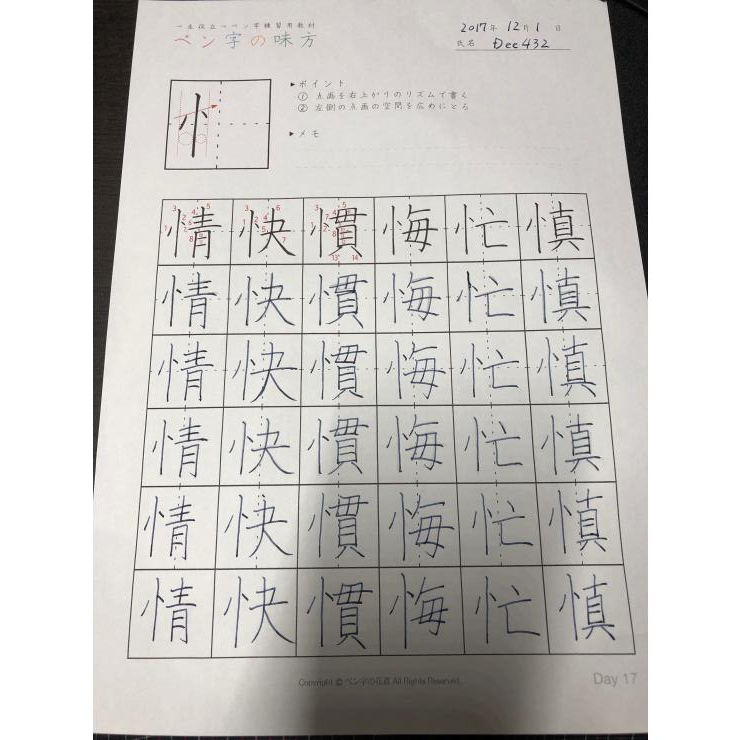 一生役立つペン字練習用教材
ペン字の味方
2017年 12月 1日
氏名 Dee432
忄
▶ポイント
① 点画を右上がりのリズムで書く
② 左側の点画の空間を広めにとる
▶メモ
情 快 慣 悔 忙 慎
情 快 慣 悔 忙 慎
情 快 慣 悔 忙 慎
情 快 慣 悔 忙 慎
情 快 慣 悔 忙 慎
情 快 慣 悔 忙 慎
Copyright © ペン字の花道 All Rights Reserved.
Day 17